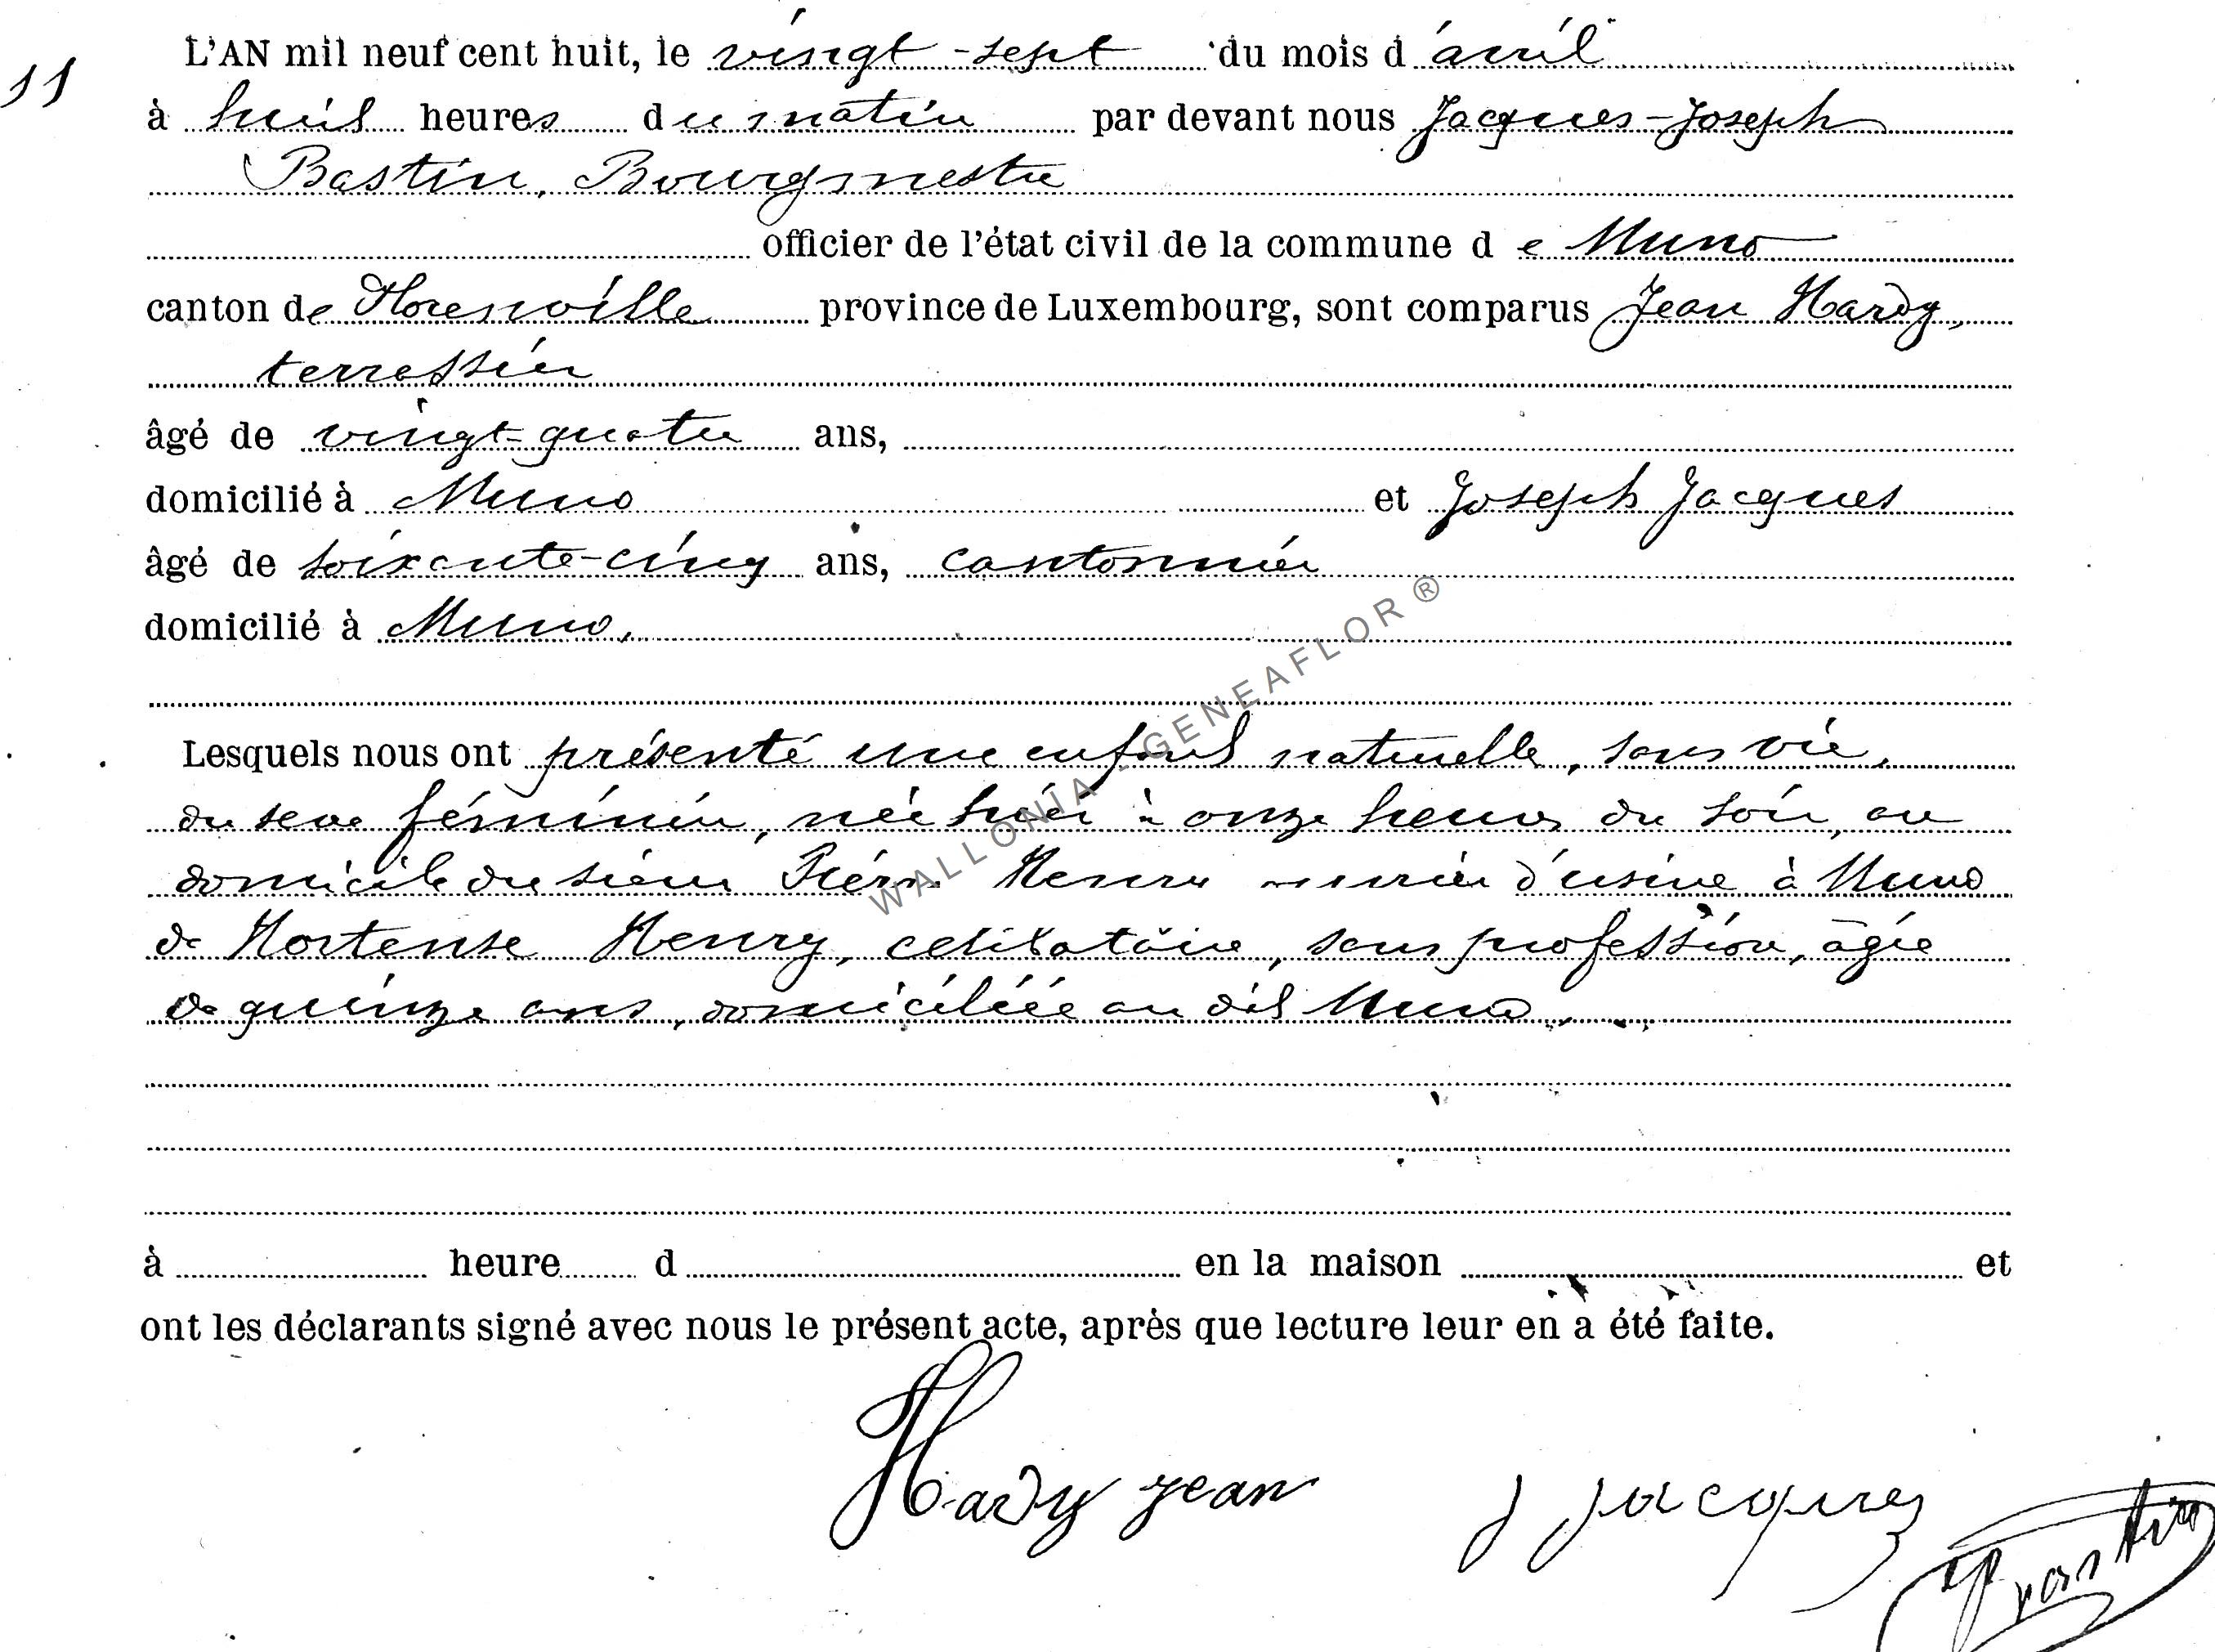 11
L'AN mil neuf cent huit, le vingt-sept du mois d'avril
à huit heures du matin par devant nous Jacques-Joseph
Bastin, Bourgmestre
officier de l'état civil de la commune de Muno
canton de Florenville province de Luxembourg, sont comparus Jean Hardy,
terrassier
âgé de vingt-quatre ans,
domicilié à Muno et Joseph Jacques
âgé de soixante-cinq ans, cantonnier
domicilié à Muno.
Lesquels nous ont présenté une enfant naturelle, sans vie,
du sexe féminin, née hier à onze heures du soir, au
domicile du sieur Pierre Henry ouvrier d'usine à Muno
de Hortense Henry, célibataire, sans profession, âgée
de quinze ans, domiciliée au dit Muno.
à heure d en la maison et
ont les déclarants signé avec nous le présent acte, après que lecture leur en a été faite.
Hardy jean J Jacques Bastin
WALLONIA - GENEAFLOR ®